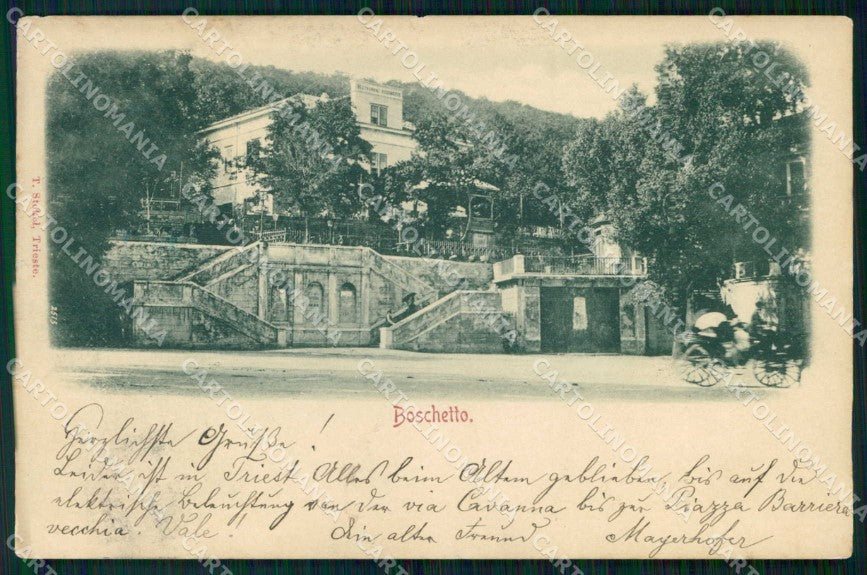 RESTAURANT BOSCHETTO
T. Stokel, Trieste.
Boschetto.
Herzlichste Grüße!
Leider ist in Triest Alles beim Altem geblieben, bis auf die
elektrische Beleuchtung von der via Cavanna bis zur Piazza Barriera
vecchia. Vale! Ein alter Freund Mayerhofer
CARTOLINOMANIA.IT